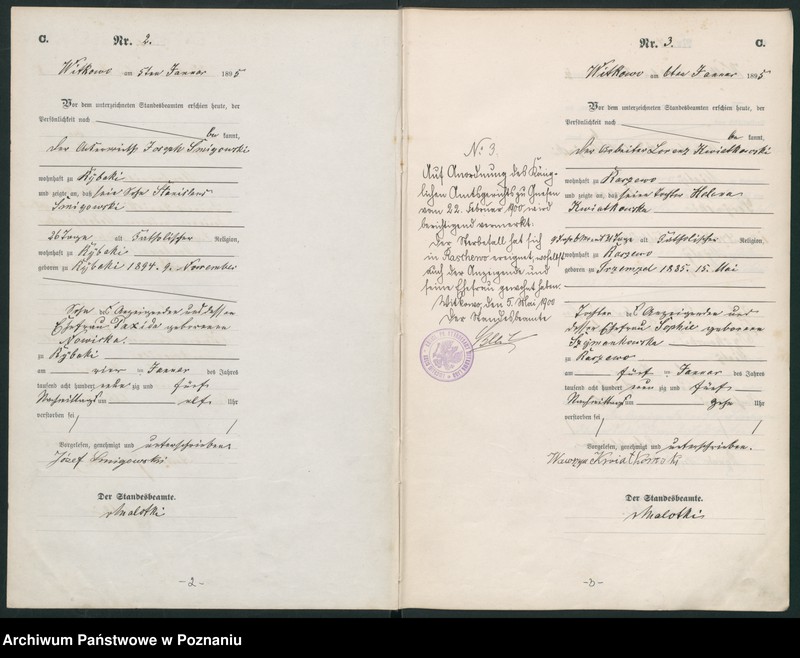 C.
Nr. 2.
Witkowo am 5ten Januar 1895
Vor dem unterzeichneten Standesbeamten erschien heute, der
Persönlichkeit nach
be kannt,
der Ackerwirth Joseph Smigowski
wohnhaft zu Rybeki
und zeigte an, daß sein Sohn Stanislaus
Smigowski
26 Tage alt katholischer Religion,
wohnhaft zu Rybeki
geboren zu Rybeki 1894. 9. November
Sohn des Anzeigenden und dessen
Ehefrau geborenen
Nowicka.
zu Rybeki
am vier ten Januar des Jahres
tausend acht hundert neun zig und fünf
Nachmittags um elf Uhr
verstorben sei
Vorgelesen, genehmigt und unterschrieben.
Józef Smigowski.
Der Standesbeamte.
Malotki
- 2 -
Nr. 3.
C.
Witkowo am 6ten Januar 1895
Vor dem unterzeichneten Standesbeamten erschien heute, der
Persönlichkeit nach
be kannt,
der Arbeiter Lorenz Kwiatkowski
wohnhaft zu Karzewo
und zeigte an, daß seine Tochter Helena
Kwiatkowska
alt katholischer Religion,
wohnhaft zu Karzewo
geboren zu 1885. 15. Mai
Tochter des Anzeigenden und
dessen Ehefrau Sophie geborenen
Szymankowska
zu Karzewo
am fünf ten Januar des Jahres
tausend acht hundert neun zig und fünf
Nachmittags um zehn Uhr
verstorben sei
Vorgelesen, genehmigt und unterschrieben.
Wawrzyn Kwiatkowski
Der Standesbeamte.
Malotki
- 3 -
No 3.
Auf Anordnung des König-
lichen Amtsgerichts zu Gnesen
vom 22. Februar 1900 wird
berichtigend vermerkt:
Der Sterbefall hat sich
in ereignet, woselbst
auch der Anzeigende und
seine Ehefrau gewohnt haben.
Witkowo, den 5. Mai 1900
Der Standesbeamte
Archiwum Państwowe w Poznaniu